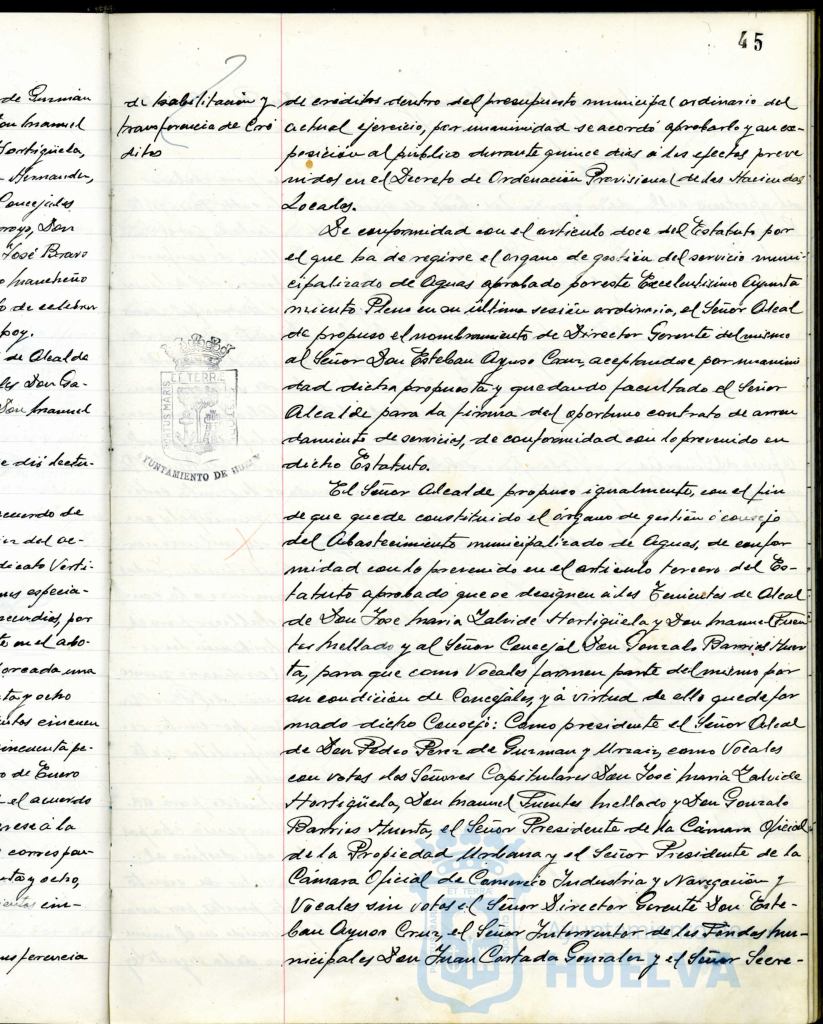 45
de Guzmán
Don Manuel
Hortigüela,
Hernandez,
Concejales
rroyo, Don
José Bravo
o Mancheño
to de celebrar
hoy.
de Alcalde
les Don Ga-
Don Manuel
e dió lectu-
acuerdo de
del ac-
dicato Verti-
especia-
por
te en el abo-
una
ta y ocho
cincuen
cincuenta pe-
o de Enero
el acuerdo
ingrese á la
correspon-
nta y ocho,
cin-
nsferencia
de habilitación y
transferencia de Cré
ditos
PORTUS MARIS ET TERRAE
AYUNTAMIENTO DE HUELVA
de créditos dentro del presupuesto municipal ordinario del
actual ejercicio, por unanimidad se acordó aprobarlo y su ex-
posición al público durante quince dias a los efectos preve
nidos en el Decreto de Ordenación Provisional de las Haciendas
Locales.
De conformidad con el articulo doce del Estatuto por
el que ha de regirse el organo de gestión del servicio muni
cipalizado de Aguas aprobado por este Excelentísimo Ayunta
miento Pleno en su última sesión ordinaria, el Señor Alcal
de propuso el nombramiento de Director Gerente del mismo
al Señor Don Esteban Ayuso Cruz, aceptandose por unanimi
dad dicha propuesta y quedando facultado el Señor
Alcalde para la firma del oportuno contrato de arren
damiento de servicios, de conformidad con lo prevenido en
dicho Estatuto.
El Señor Alcalde propuso igualmente, con el fin
de que quede constituido el órgano de gestión ó consejo
del Abastecimiento municipalizado de Aguas, de confor
midad con lo prevenido en el articulo tercero del Es-
tatuto aprobado que se designen a los Tenientes de Alcal
de Don Jose Maria Zalvide Hortigüela y Don Manuel Fuen
tes Mellado y al Señor Concejal Don Gonzalo Barrios Huer
ta, para que como Vocales formen parte del mismo por
su condición de Concejales, y á virtud de ello quede for
mado dicho Consejo: Como presidente el Señor Alcal
de Don Pedro Perez de Guzman y Urzaiz, como Vocales
con votos a los Señores Capitulares Don José Maria Zalvide
Hortigüela, Don Manuel Fuentes Mellado y Don Gonzalo
Barrios Huerta, el Señor Presidente de la Cámara Oficial
de la Propiedad Urbana y el Señor Presidente de la
Cámara Oficial de Comercio Industria y Navegación y
Vocales sin votos el Señor Director Gerente Don Este-
ban Ayuso Cruz, el Señor Interventor de los Fondos Mu-
nicipales Don Juan Cortada Gonzalez y el Señor Secre-
Ayuntamiento de
HUELVA